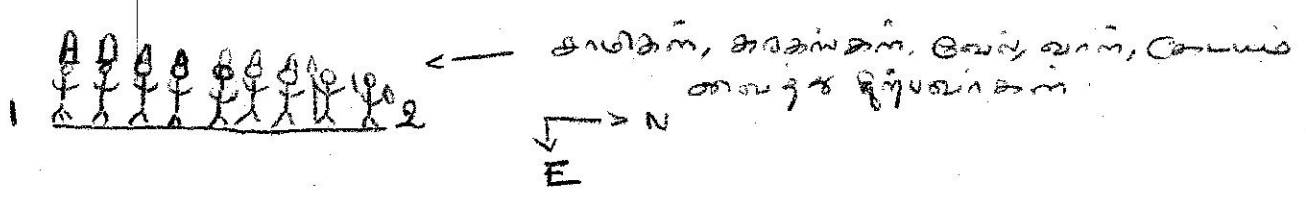 சாமிகள், கரகங்கள், வேல், வாள், கேடயம்
வைத்து நிற்பவர்கள்
1 2
N
E